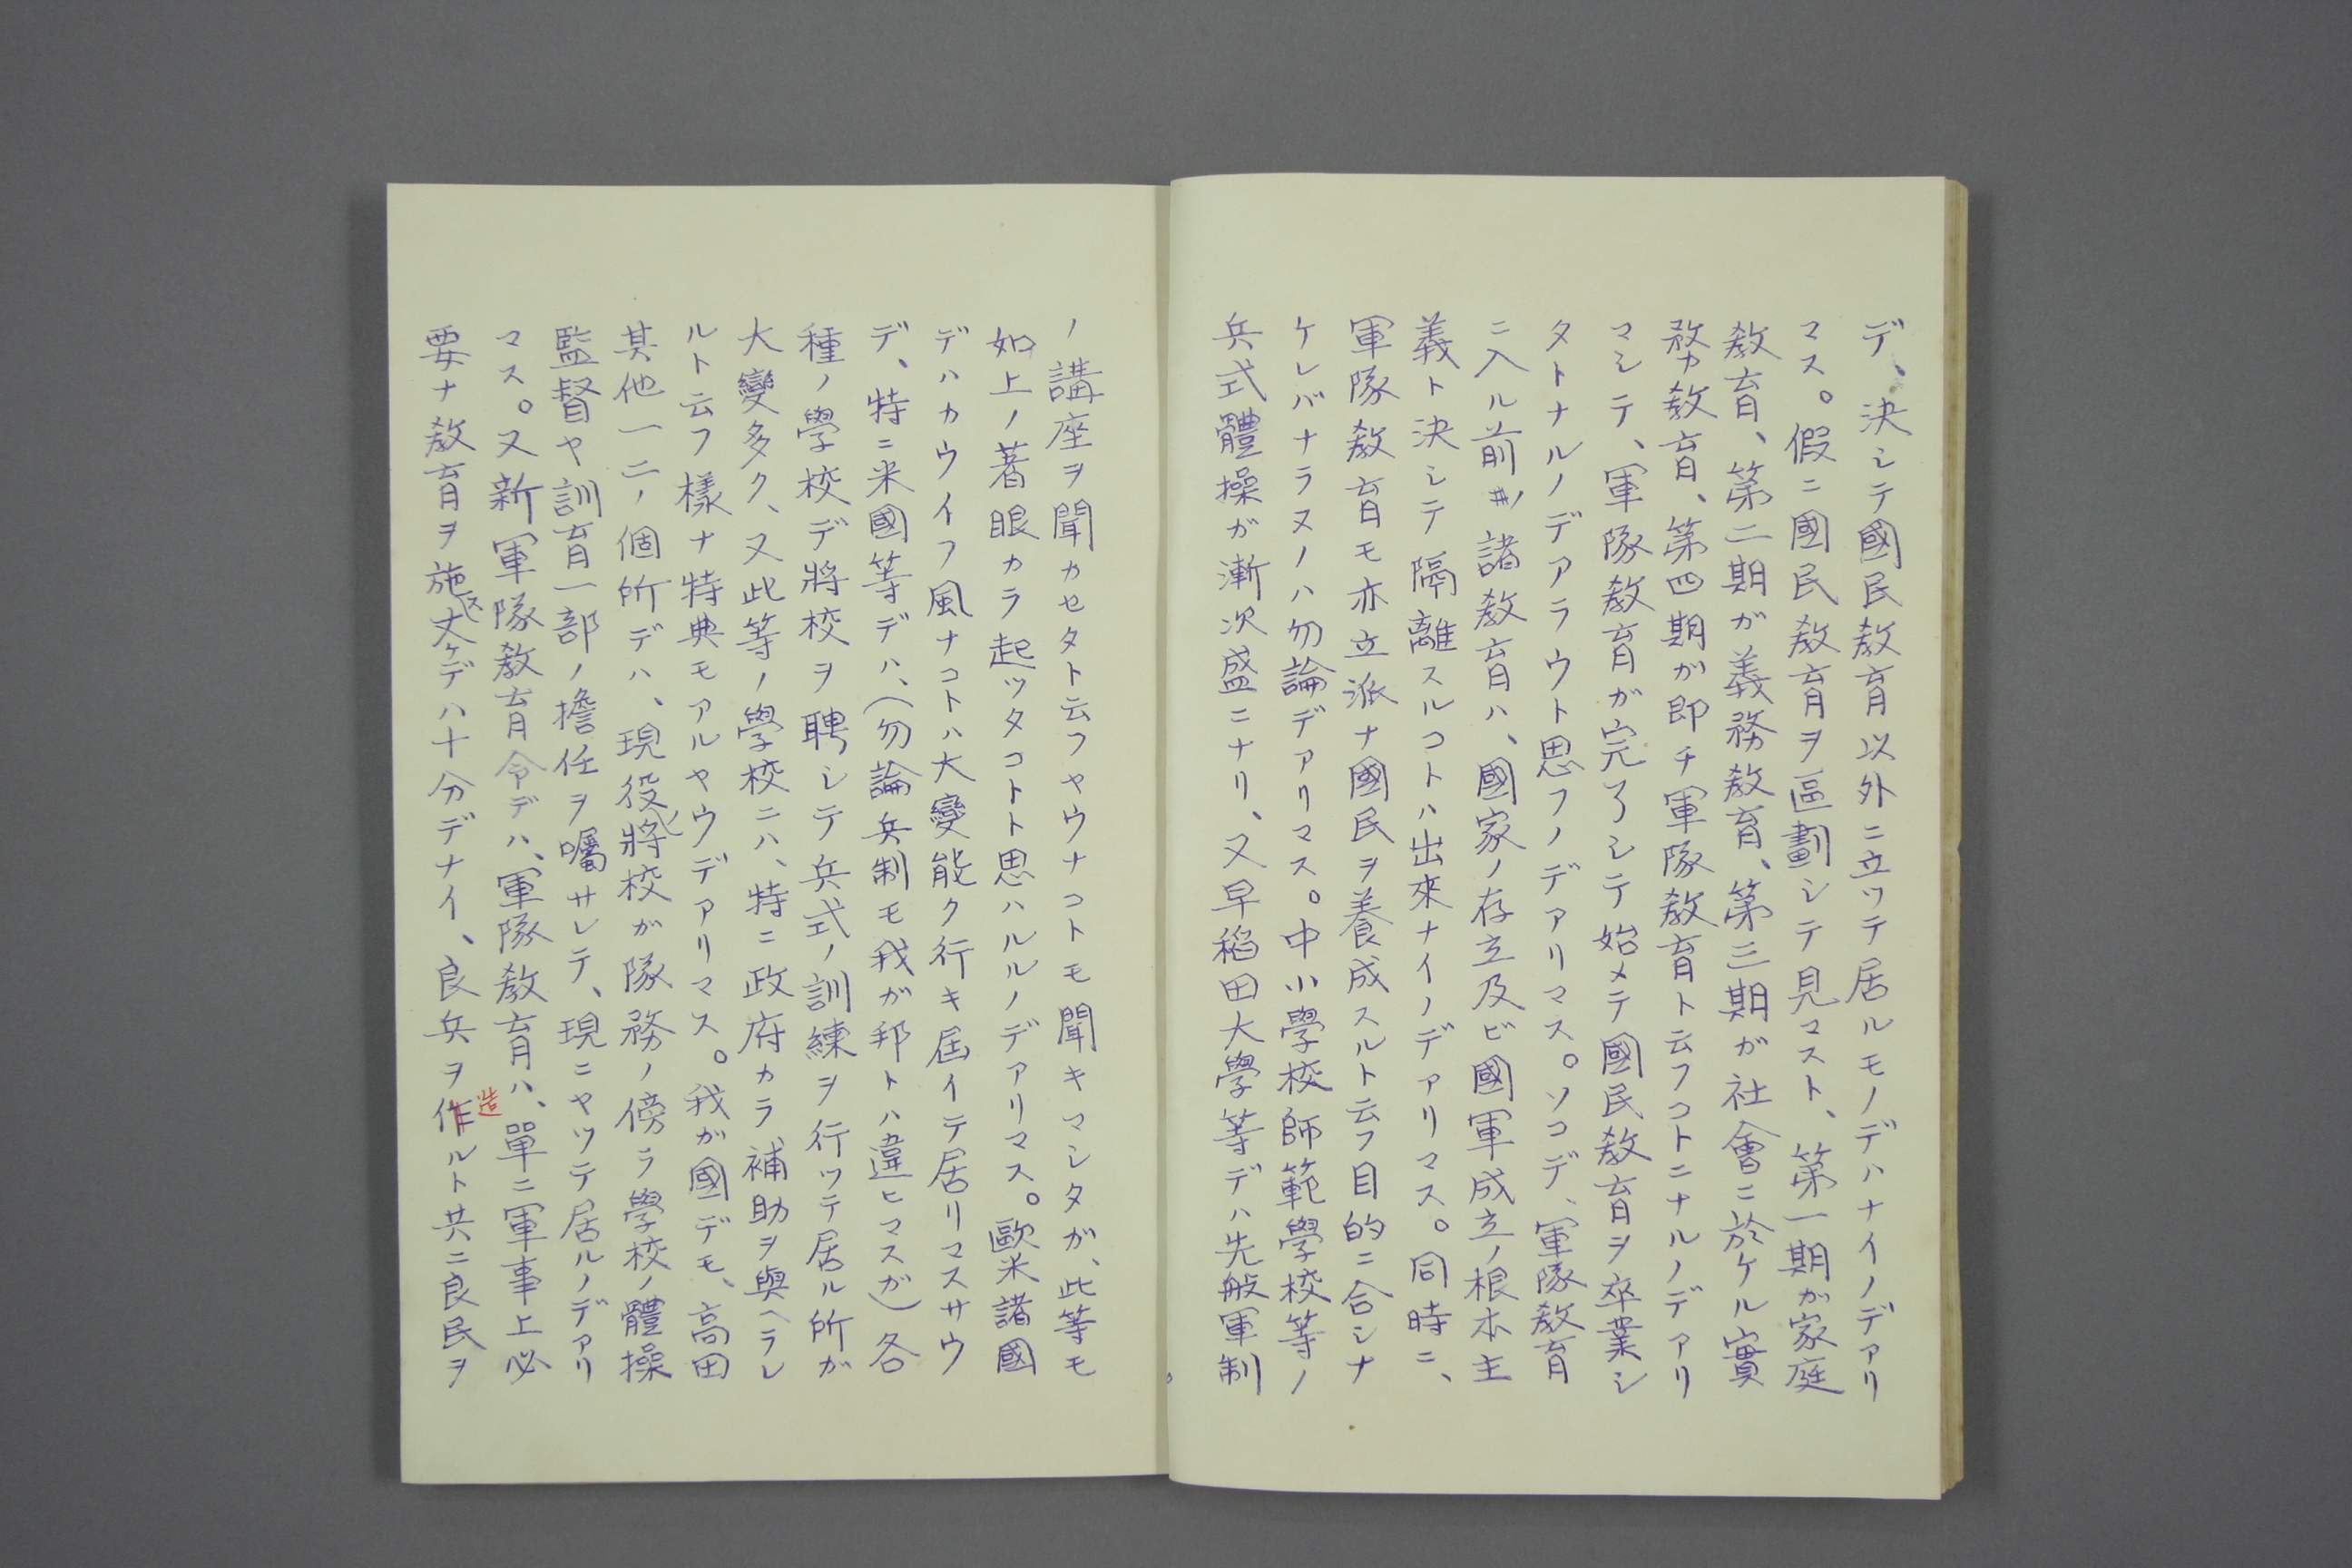 デ、決シテ國民敎育以外ニ立ツテ居ルモノデハナイノデアリ
マス。假ニ國民敎育ヲ區劃シテ見マスト、第一期が家庭
敎育、第二期が義務敎育、第三期が社會ニ於ケル實
務敎育、第四期が即チ軍隊敎育ト云フコトニナルノデアリ
マシテ、軍隊敎育が完了シテ始メテ國民敎育ヲ卒業シ
タトナルノデアラウト思フノデアリマス。ソコデ、軍隊敎育
ニ入ル前ノ諸敎育ハ、國家ノ存立及ビ國軍成立ノ根本主
義ト決シテ隔離スルコトハ出來ナイノデアリマス。同時ニ、
軍隊敎育モ亦立派ナ國民ヲ養成スルト云フ目的ニ合シナ
ケレバナラヌノハ勿論デアリマス。中小學校師範學校等ノ
兵式體操が漸次盛ニナリ、又早稻田大學等デハ先般軍制
ノ講座ヲ聞カセタト云フヤウナコトモ聞キマシタが、此等モ
如上ノ著眼カラ起ツタコトト思ハルルノデアリマス。歐米諸國
デハカウイフ風ナコトハ大變能ク行キ屆イテ居リマスサウ
デ、特ニ米國等デハ、(勿論兵制モ我が邦トハ違ヒマスが)各
種ノ學校デ將校ヲ聘シテ兵式ノ訓練ヲ行ツテ居ル所が
大變多ク、又此等ノ學校ニハ、特ニ政府カラ補助ヲ與ヘラレ
ルト云フ樣ナ特典モアルヤウデアリマス。我が國デモ、高田
其他一二ノ個所デハ、現役ノ將校が隊務ノ傍ラ學校ノ體操
監督ヤ訓育一部ノ擔任ヲ囑サレテ、現ニヤツテ居ルノデアリ
マス。又新軍隊敎育令デハ、軍隊敎育ハ、單ニ軍事上必
要ナ敎育ヲ施ス丈ケデハ十分デナイ、良兵ヲ造ルト共ニ良民ヲ